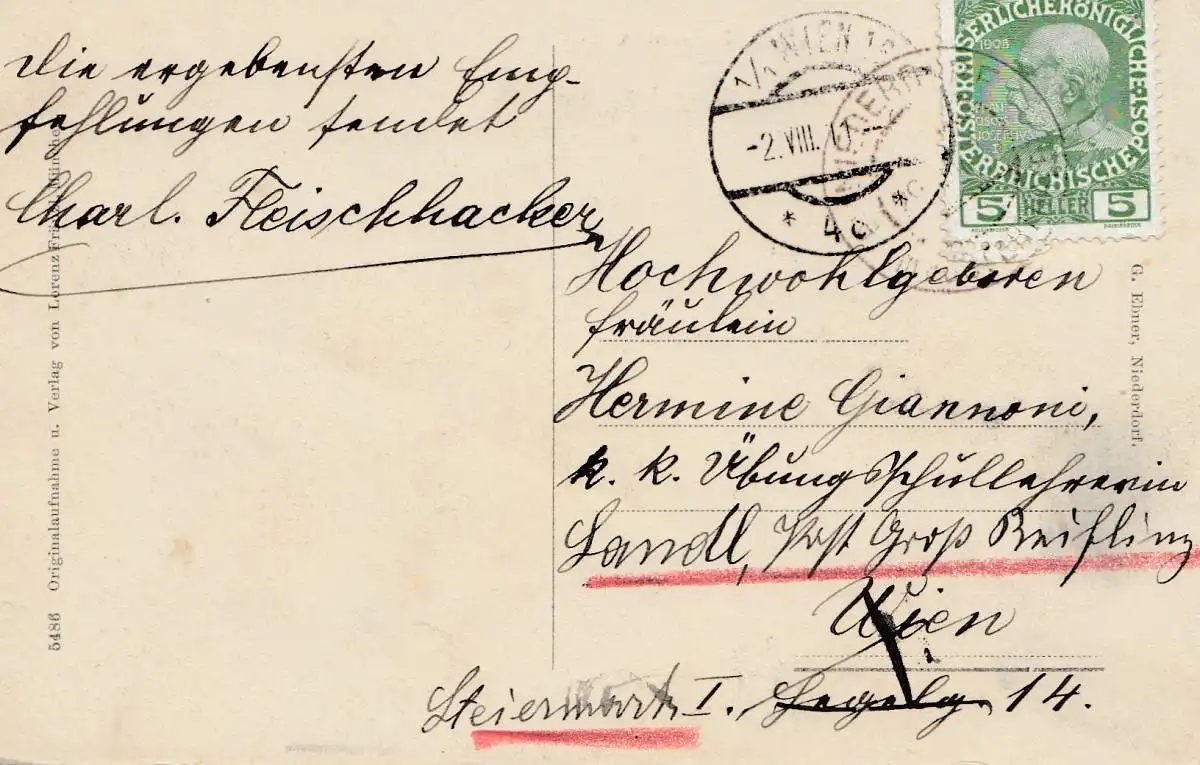 die ergebensten Emp-
fehlungen sendet
Charl. Fleischhacker
Hochwohlgeboren
Fräulein
Hermine Giannoni,
k. k. Übungsschullehrerin
Landl, Post Groß Reifling
Wien
Steiermark I. Hegelg. 14.
1/1 WIEN 1
-2.VIII.11
* 4c *
KAISERLICHEKÖNIGLICHE
ÖSTERREICHISCHE POST
1908
5 HELLER 5
5486 Originalaufnahme u. Verlag von Lorenz Fränzl, München
G. Ebner, Niederdorf.